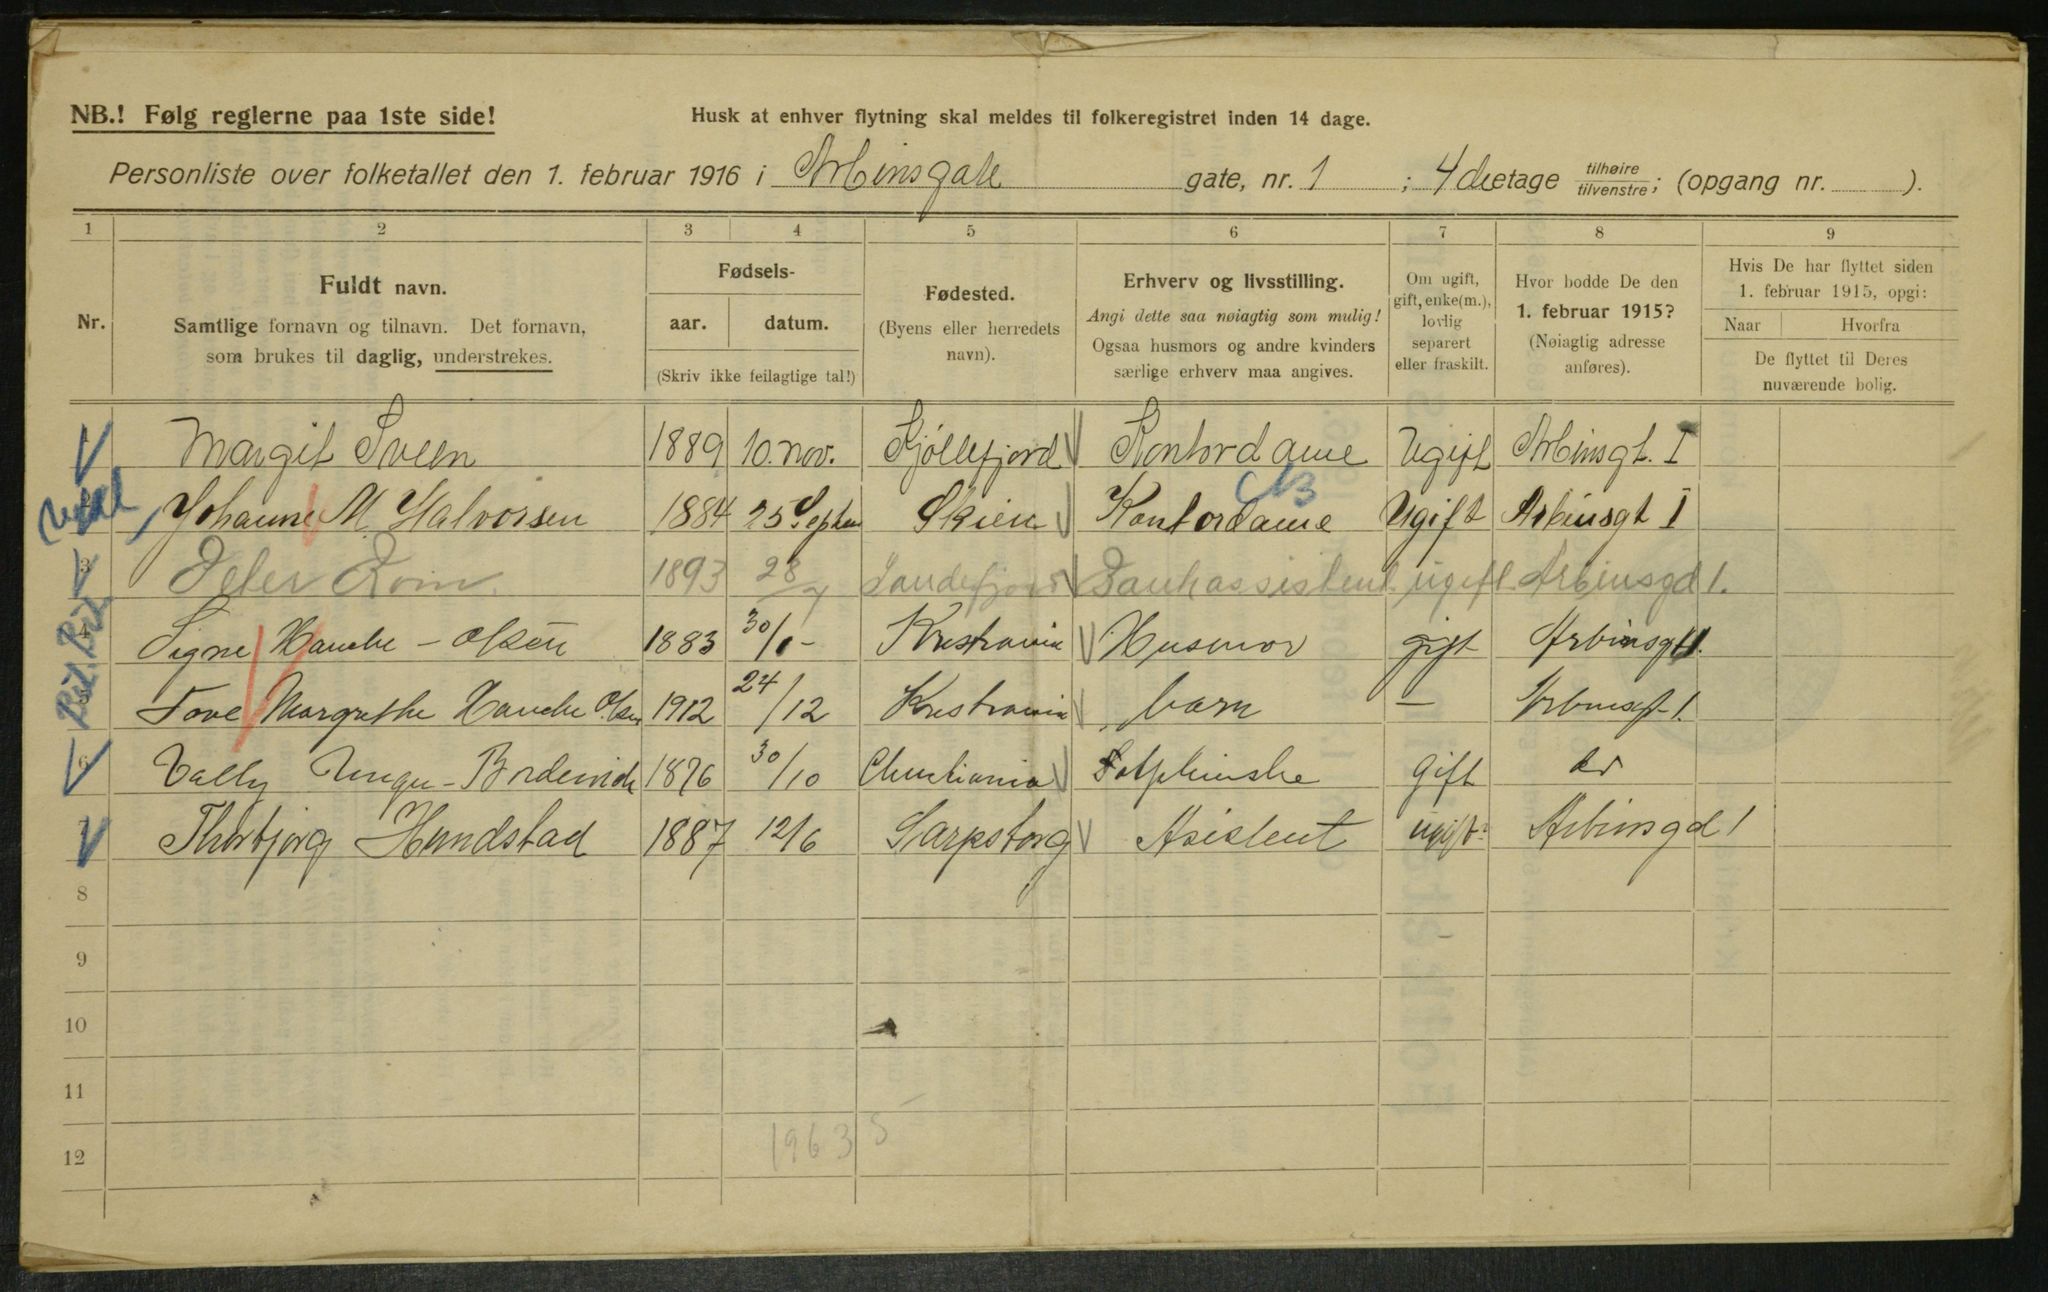 NB.! Følg reglerne paa 1ste side!
Husk at enhver flytning skal meldes til folkeregistret inden 14 dage.
Personliste over folketallet den 1. februar 1916 i Arbinsgate gate, nr. 1 ; 4de etage tilhøire tilvenstre; (opgang nr. ).
1 2 3 4 5 6 7 8 9
Nr.
Fuldt navn.
Samtlige fornavn og tilnavn. Det fornavn,
som brukes til daglig, understrekes.
Fødsels-
aar. datum.
(Skriv ikke feilagtige tal!)
Fødested.
(Byens eller herredets
navn).
Erhverv og livsstilling.
Angi dette saa nøiagtig som mulig!
Ogsaa husmors og andre kvinders
særlige erhverv maa angives.
Om ugift,
gift, enke(m.),
lovlig
separert
eller fraskilt.
Hvor bodde De den
1. februar 1915?
(Nøiagtig adresse
anføres).
Hvis De har flyttet siden
1. februar 1915, opgi:
Naar Hvorfra
De flyttet til Deres
nuværende bolig.
Margit Sveen 1889 10. nov. Kjøllefjord Kontordame Ugift Arbinsgt. I
Johanne M. Halvorsen 1884 25 Septem Skien Kontordame Ugift Arbinsgt I
3 Peter 1893 28/7 Sandefjord Bankassistent ugift Arbinsgd 1.
4 Signe Hanche-Olsen 1883 30/1- Kristiania Husmor gift Arbinsgt 1.
5 Tove Margrethe Hanche Olsen 1912 24/12 Kristiania barn — Arbinsgt 1.
6 Vally Unger- 1876 30/10 Christiania gift do
7 Thorbjørg Hundstad 1887 12/6 Sarpsborg Asistent ugift Arbinsgd 1
8
9
10
11
12
1963 5